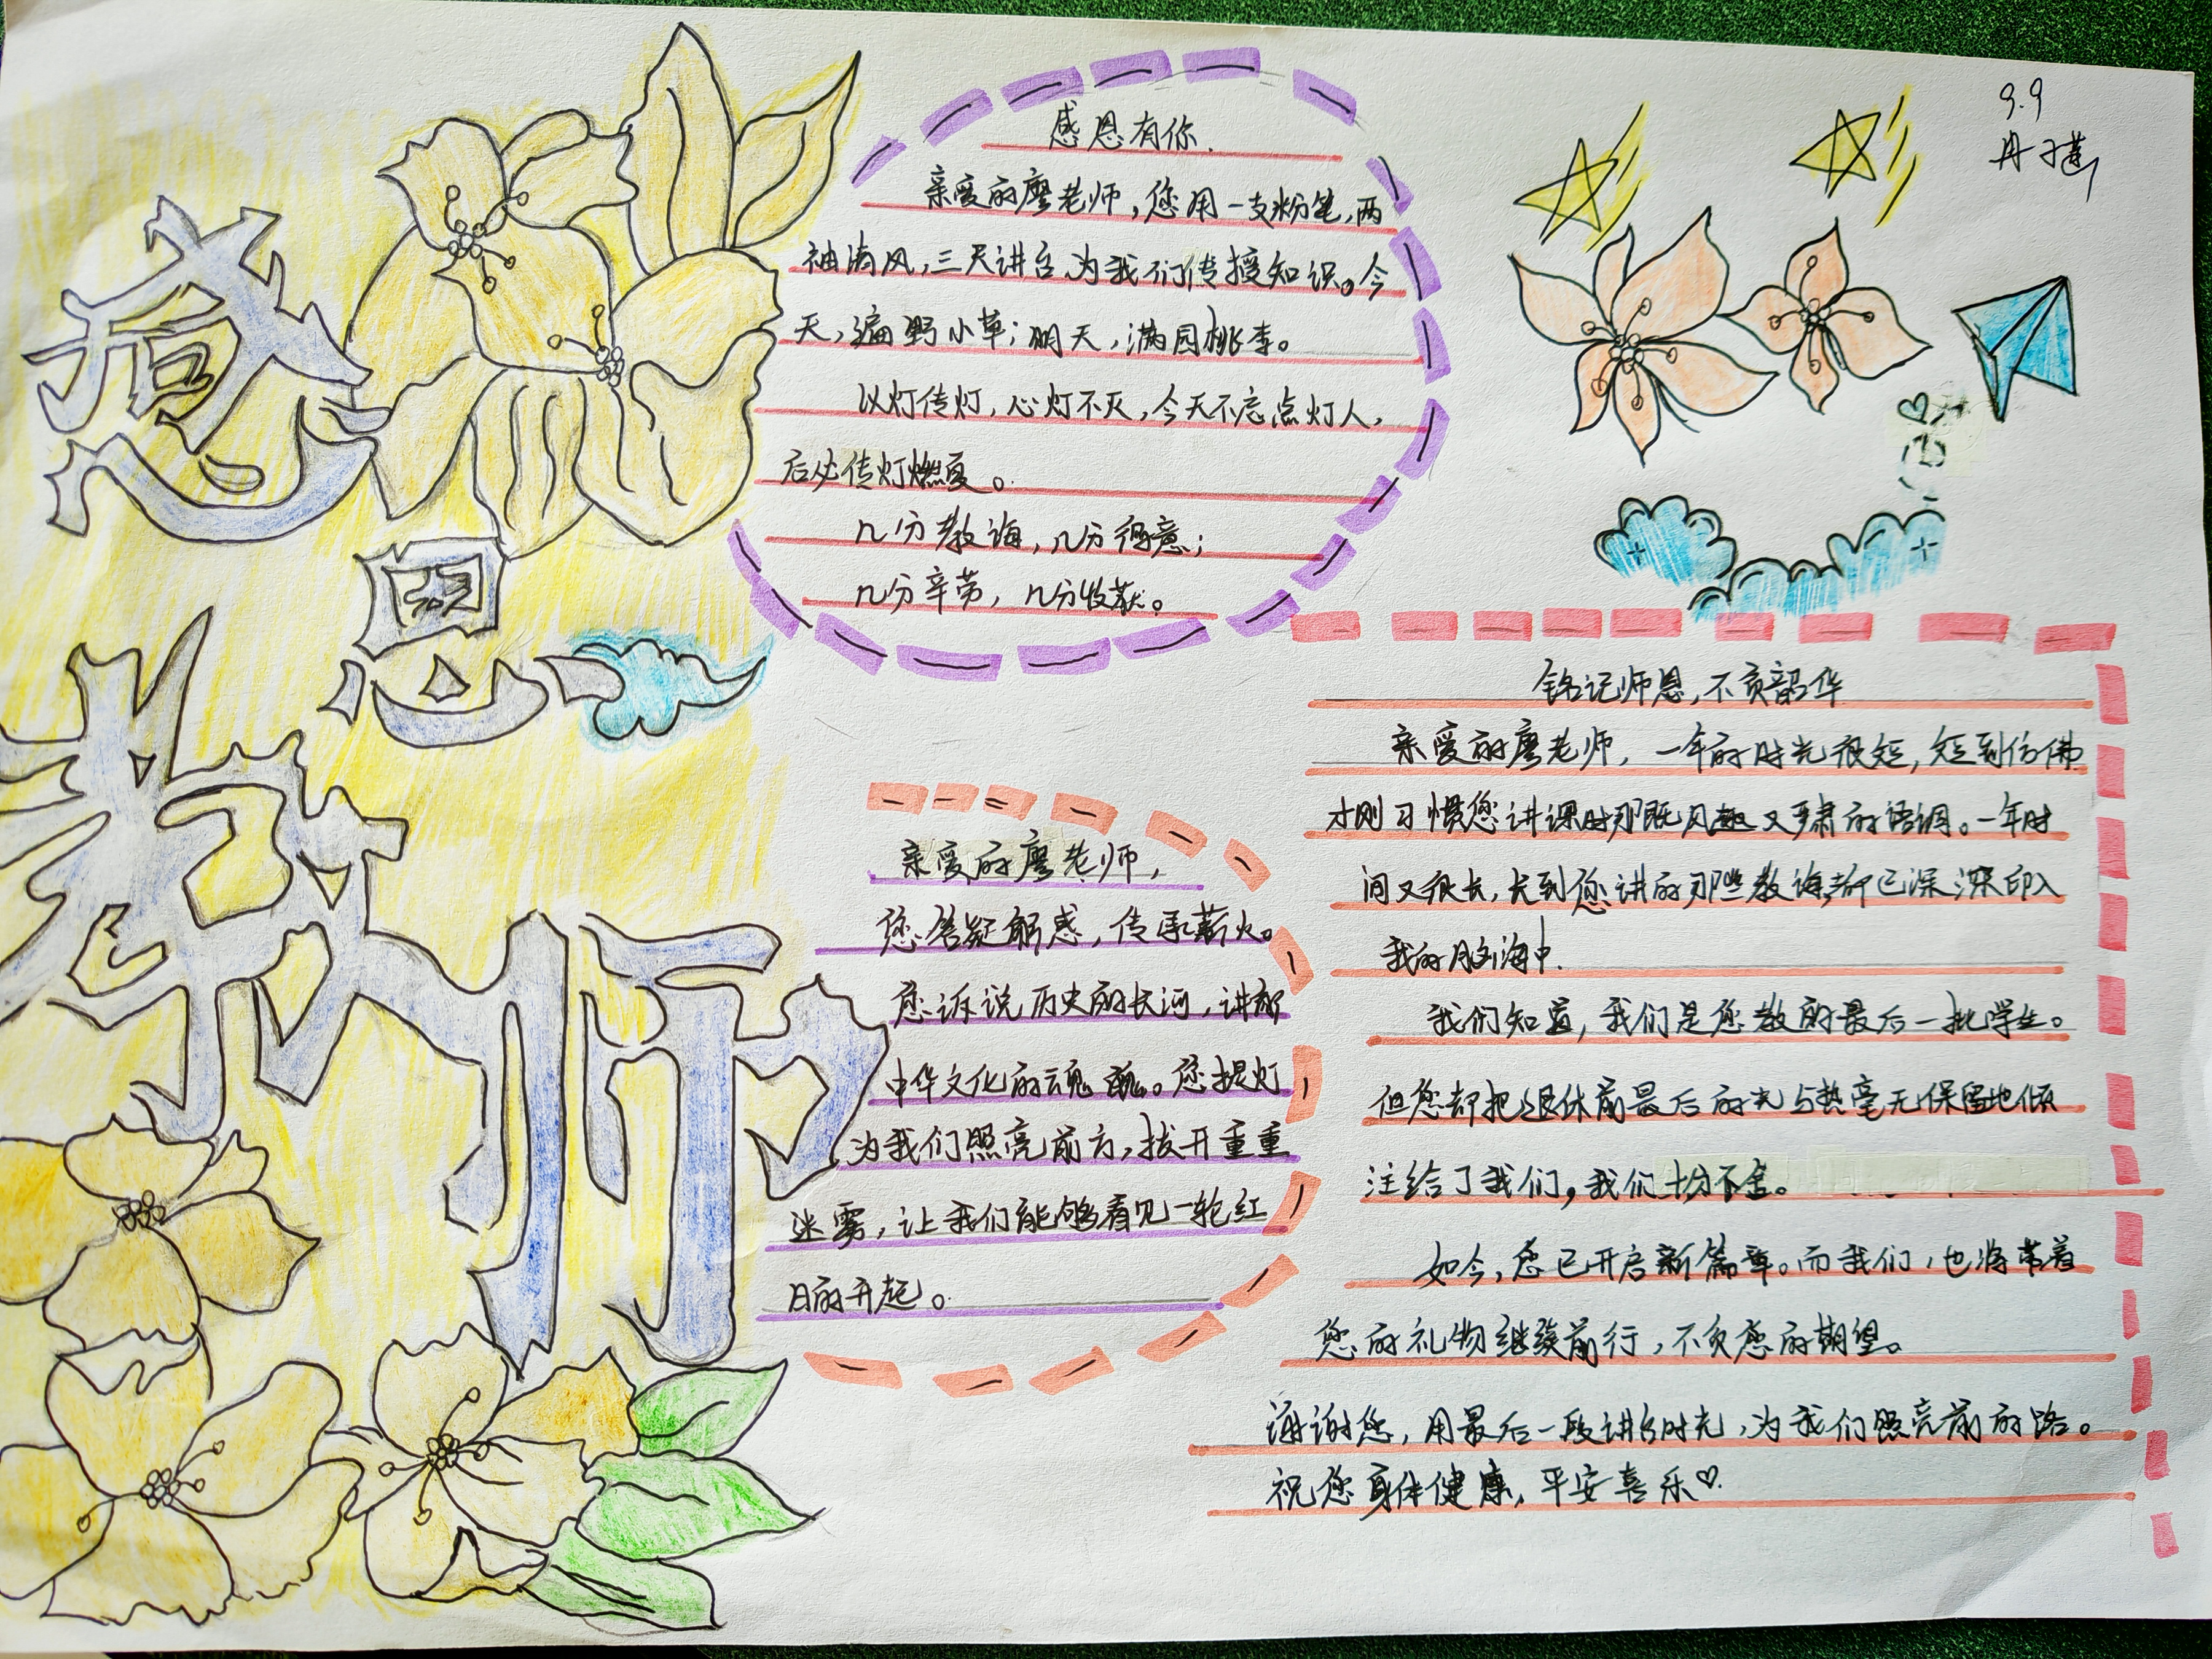 感恩教师
9.9
感恩有你.
亲爱的廖老师,您用一支粉笔,两
袖清风,三尺讲台,为我们传授知识。今
天,遍野小草;明天,满园桃李。
以灯传灯,心灯不灭,今天不忘点灯人,
后必传灯燃夏。
几分教诲,几分得意;
几分辛劳,几分收获。
亲爱的廖老师,
您答疑解惑,传承薪火。
您诉说历史的长河,讲解
中华文化的魂魄。您提灯
为我们照亮前方,拔开重重
迷雾,让我们能够看见一轮红
日的升起。
铭记师恩,不负韶华
亲爱的廖老师,一年的时光很短,短到仿佛
才刚习惯您讲课时那既风趣又严肃的语调。一年时
间又很长,长到您讲的那些教诲都已深深印入
我的脑海中.
我们知道,我们是您教的最后一批学生。
但您却把退休前最后的光与热毫无保留地倾
注给了我们,我们十分不舍。
如今,您已开启新篇章。而我们,也将带着
您的礼物继续前行,不负您的期望。
谢谢您,用最后一段讲台时光,为我们照亮前的路。
祝您身体健康,平安喜乐♡.